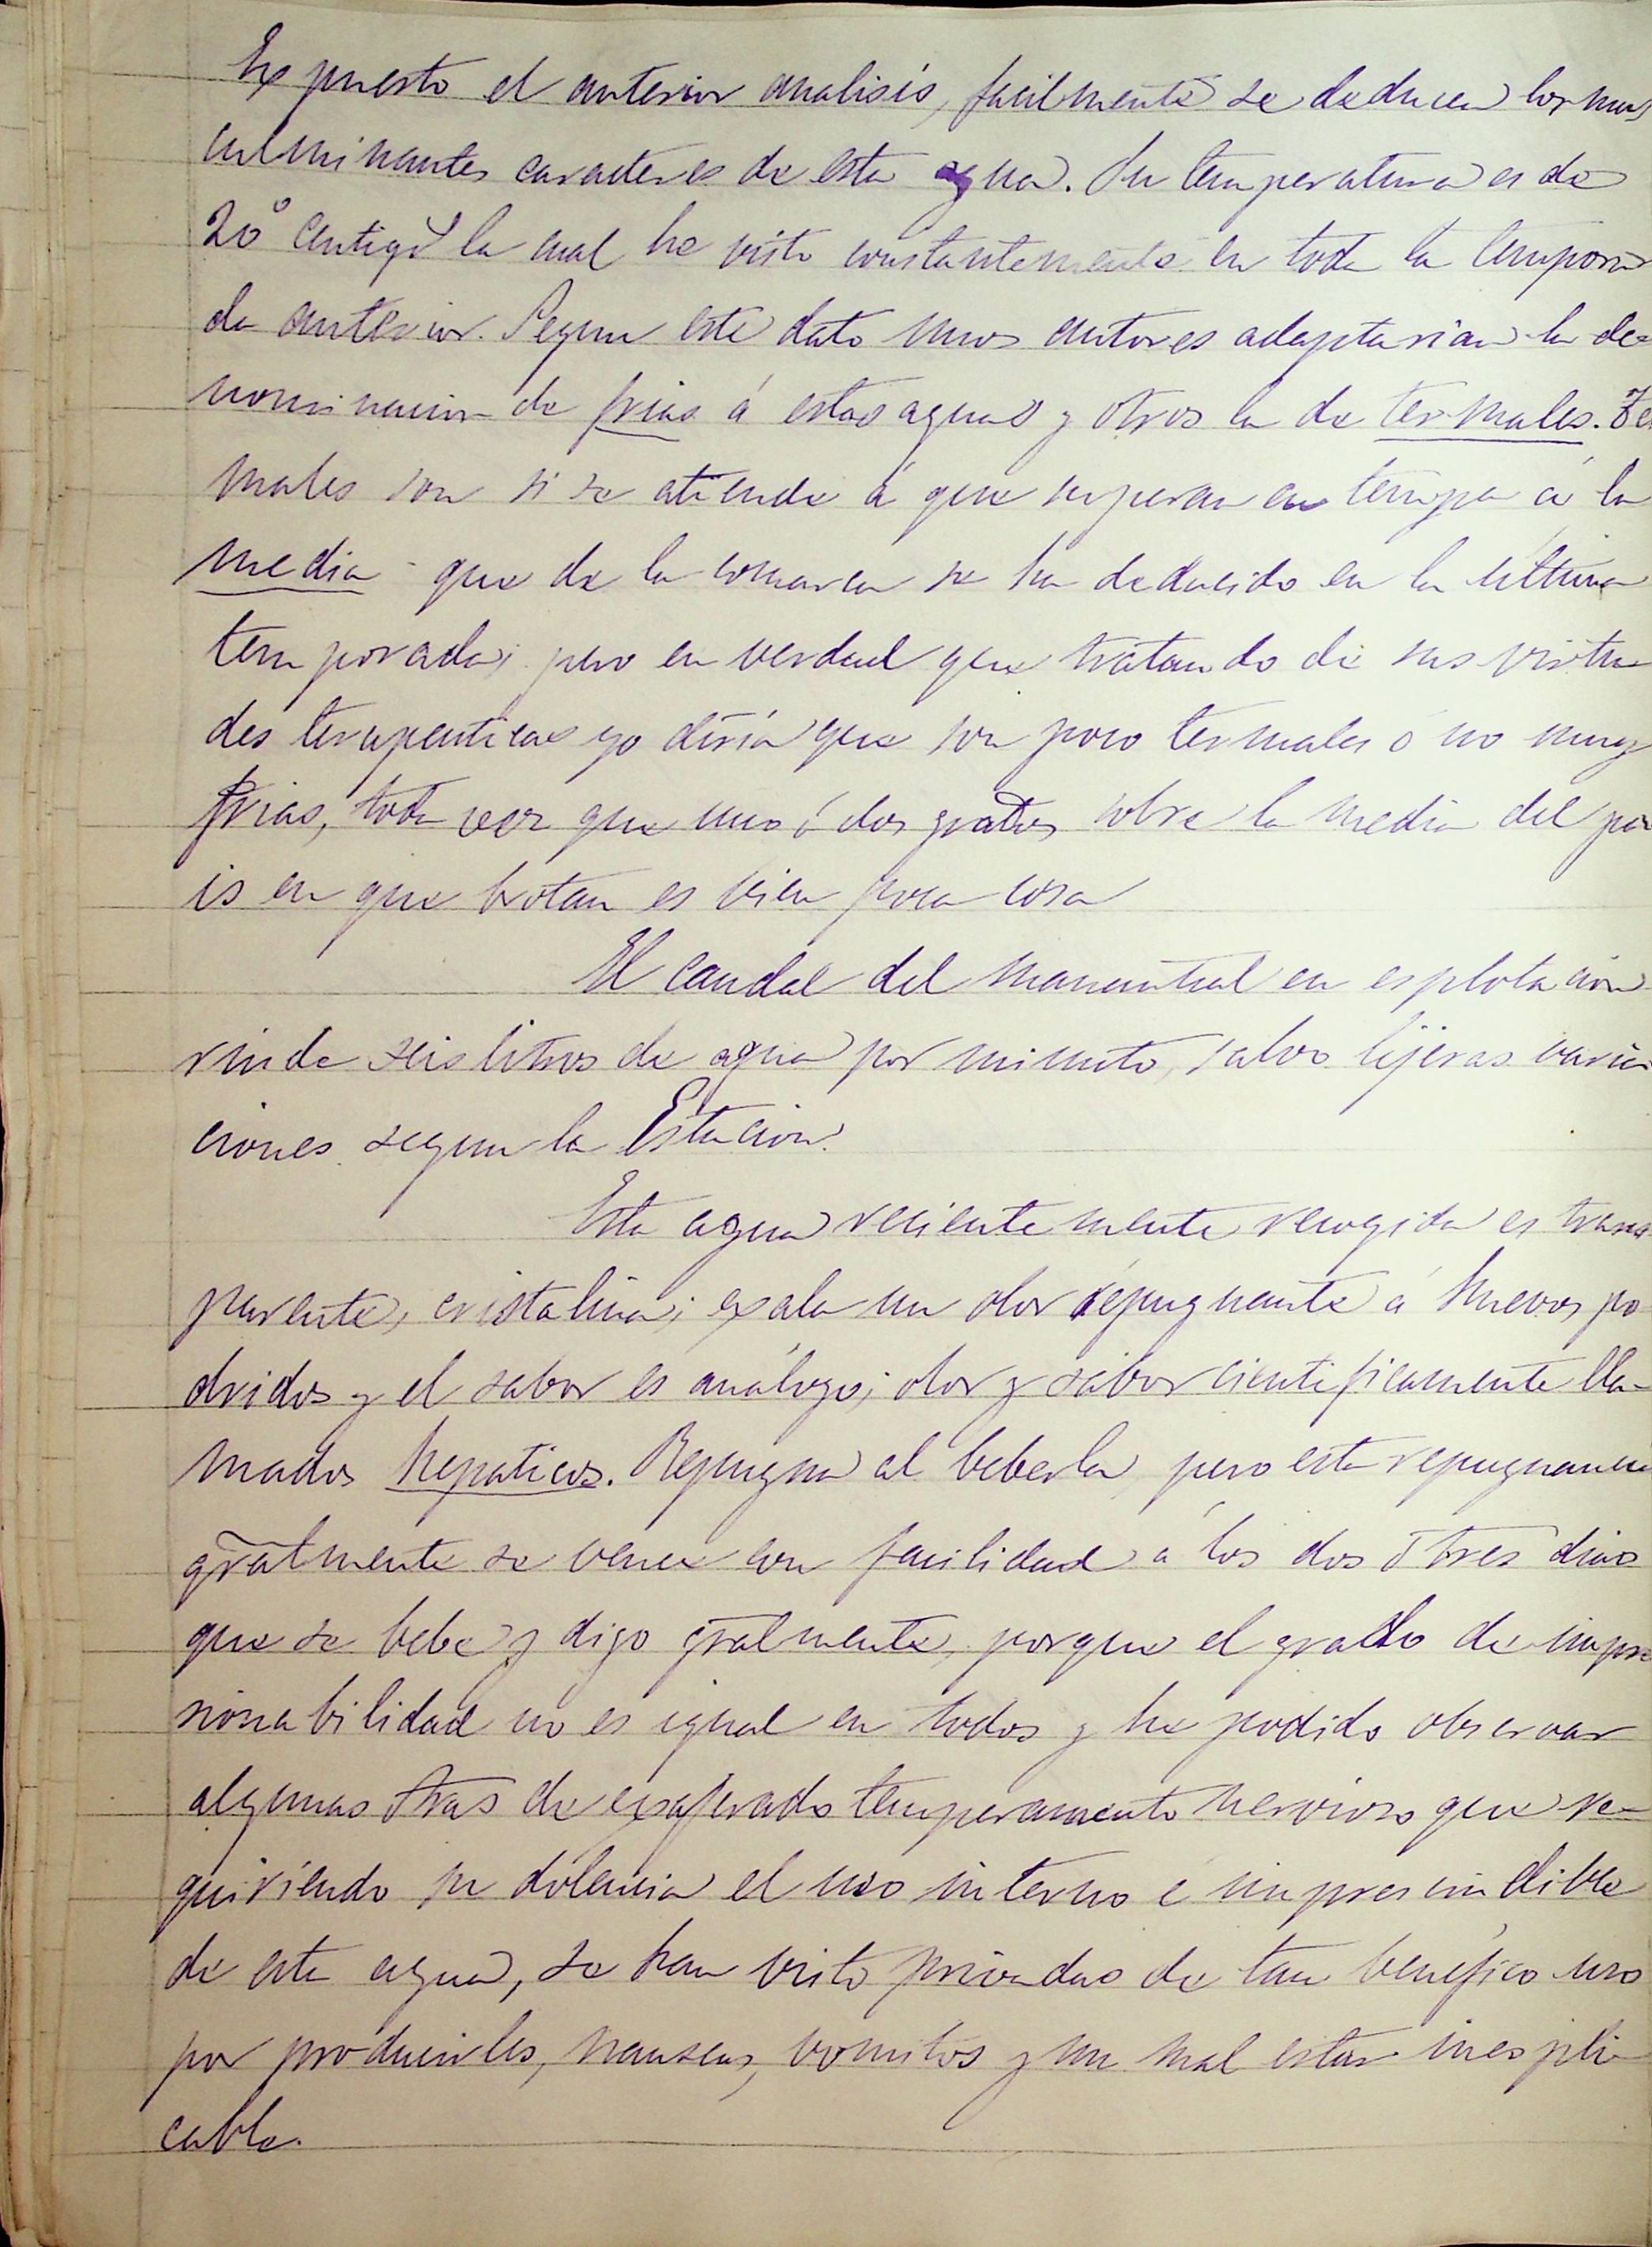 Expuesto el anterior analisis, facilmente se deducen los mas
culminantes caracteres de esta agua. Su temperatura es de
20º centigs la cual he visto constantemente en toda la tempora
da anterior. Segun este dato unos autores adaptarian la de-
nominacion de frias á estas aguas y otros la de termales. Ter
males son si se atiende á que superan en tempa á la
media que de la comarca se ha deducido en la última
temporada; pero en verdad que tratando de sus virtu
des terapenticas yo diria que son poco termales ó no muy
frias, toda vez que uno ó dos grados sobre la media del pa
is en que brotan es bien poca cosa
El caudal del manantial en esplotacion
rinde seis litros de agua por minuto, salvo lijeras varia
ciones segun la Estacion.
Esta agua recientemente recogida es trans
parente, cristalina; exala un olor repugnante á huevos po
dridos y el sabor es análogo; olor y sabor cientificamente lla-
mados hepaticos. Repugna al beberla, pero esta repugnancia
gralmente se vence con facilidad á los dos ó tres dias
que se bebe y digo gralmente, porque el grado de impre
sionabilidad no es igual en todos y he podido observar
algunas Sras de exaferado temperamento nervioso que re-
quiriendo su dolencia el uso interno é imprescindible
de esta agua, se han visto privadas de tan benéfico uso
por producirles, nauseas, vomitos y un mal estar inespli
cable.